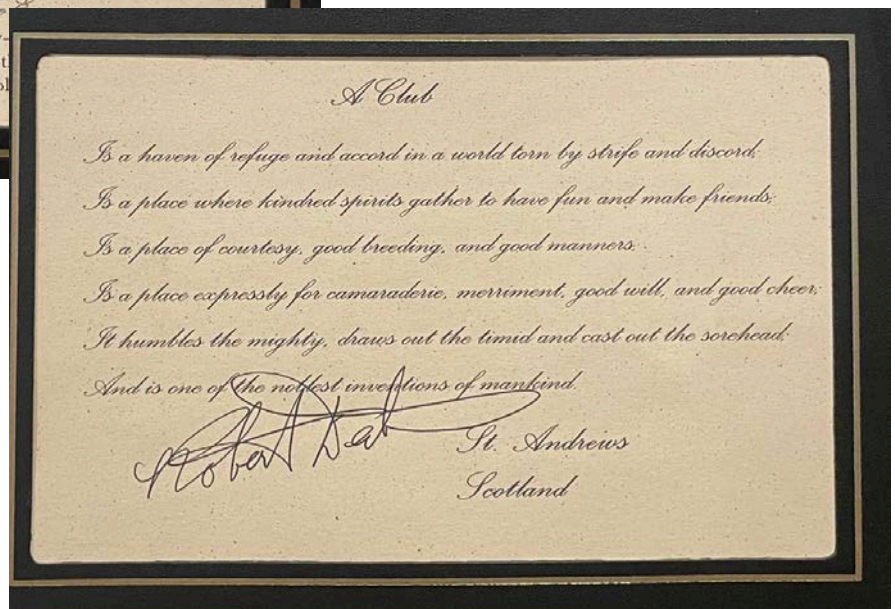 A Club
Is a haven of refuge and accord in a world torn by strife and discord;
Is a place where kindred spirits gather to have fun and make friends;
Is a place of courtesy, good breeding, and good manners;
Is a place expressly for camaraderie, merriment, good will, and good cheer;
It humbles the mighty, draws out the timid and cast out the sorehead;
And is one of the noblest inventions of mankind.
Robert
St. Andrews
Scotland